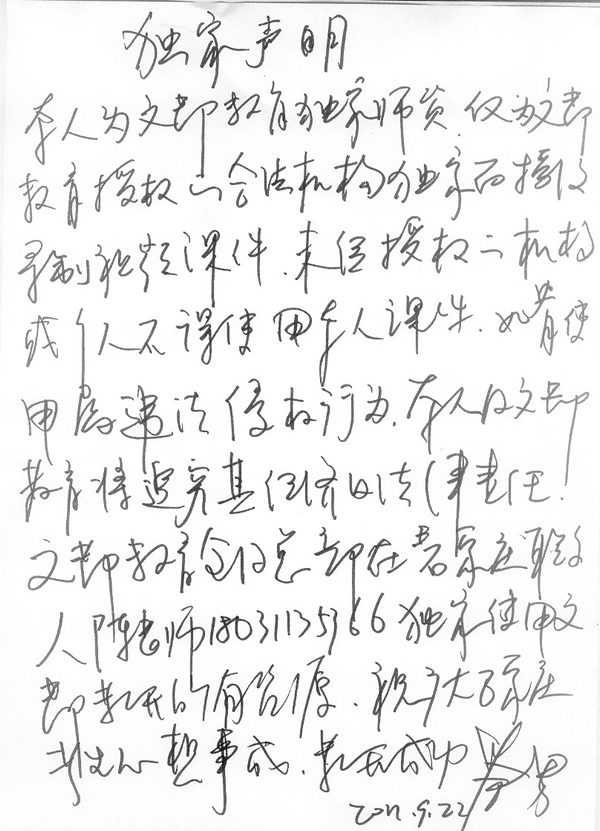 独家声明
本人为文都教育独家师资,仅为文都
教育授权的合法机构独家面授及
录制视频课件.未经授权的机构
或个人不得使用本人课件.如有使
用属违法侵权行为.本人及文都
教育将追究其经济及法律责任.
文都教育全国总部在石家庄联系
人陈老师18031135366独家使用文
都考研所有资源.祝广大石家庄
考生心想事成.考研成功
2011.9.22